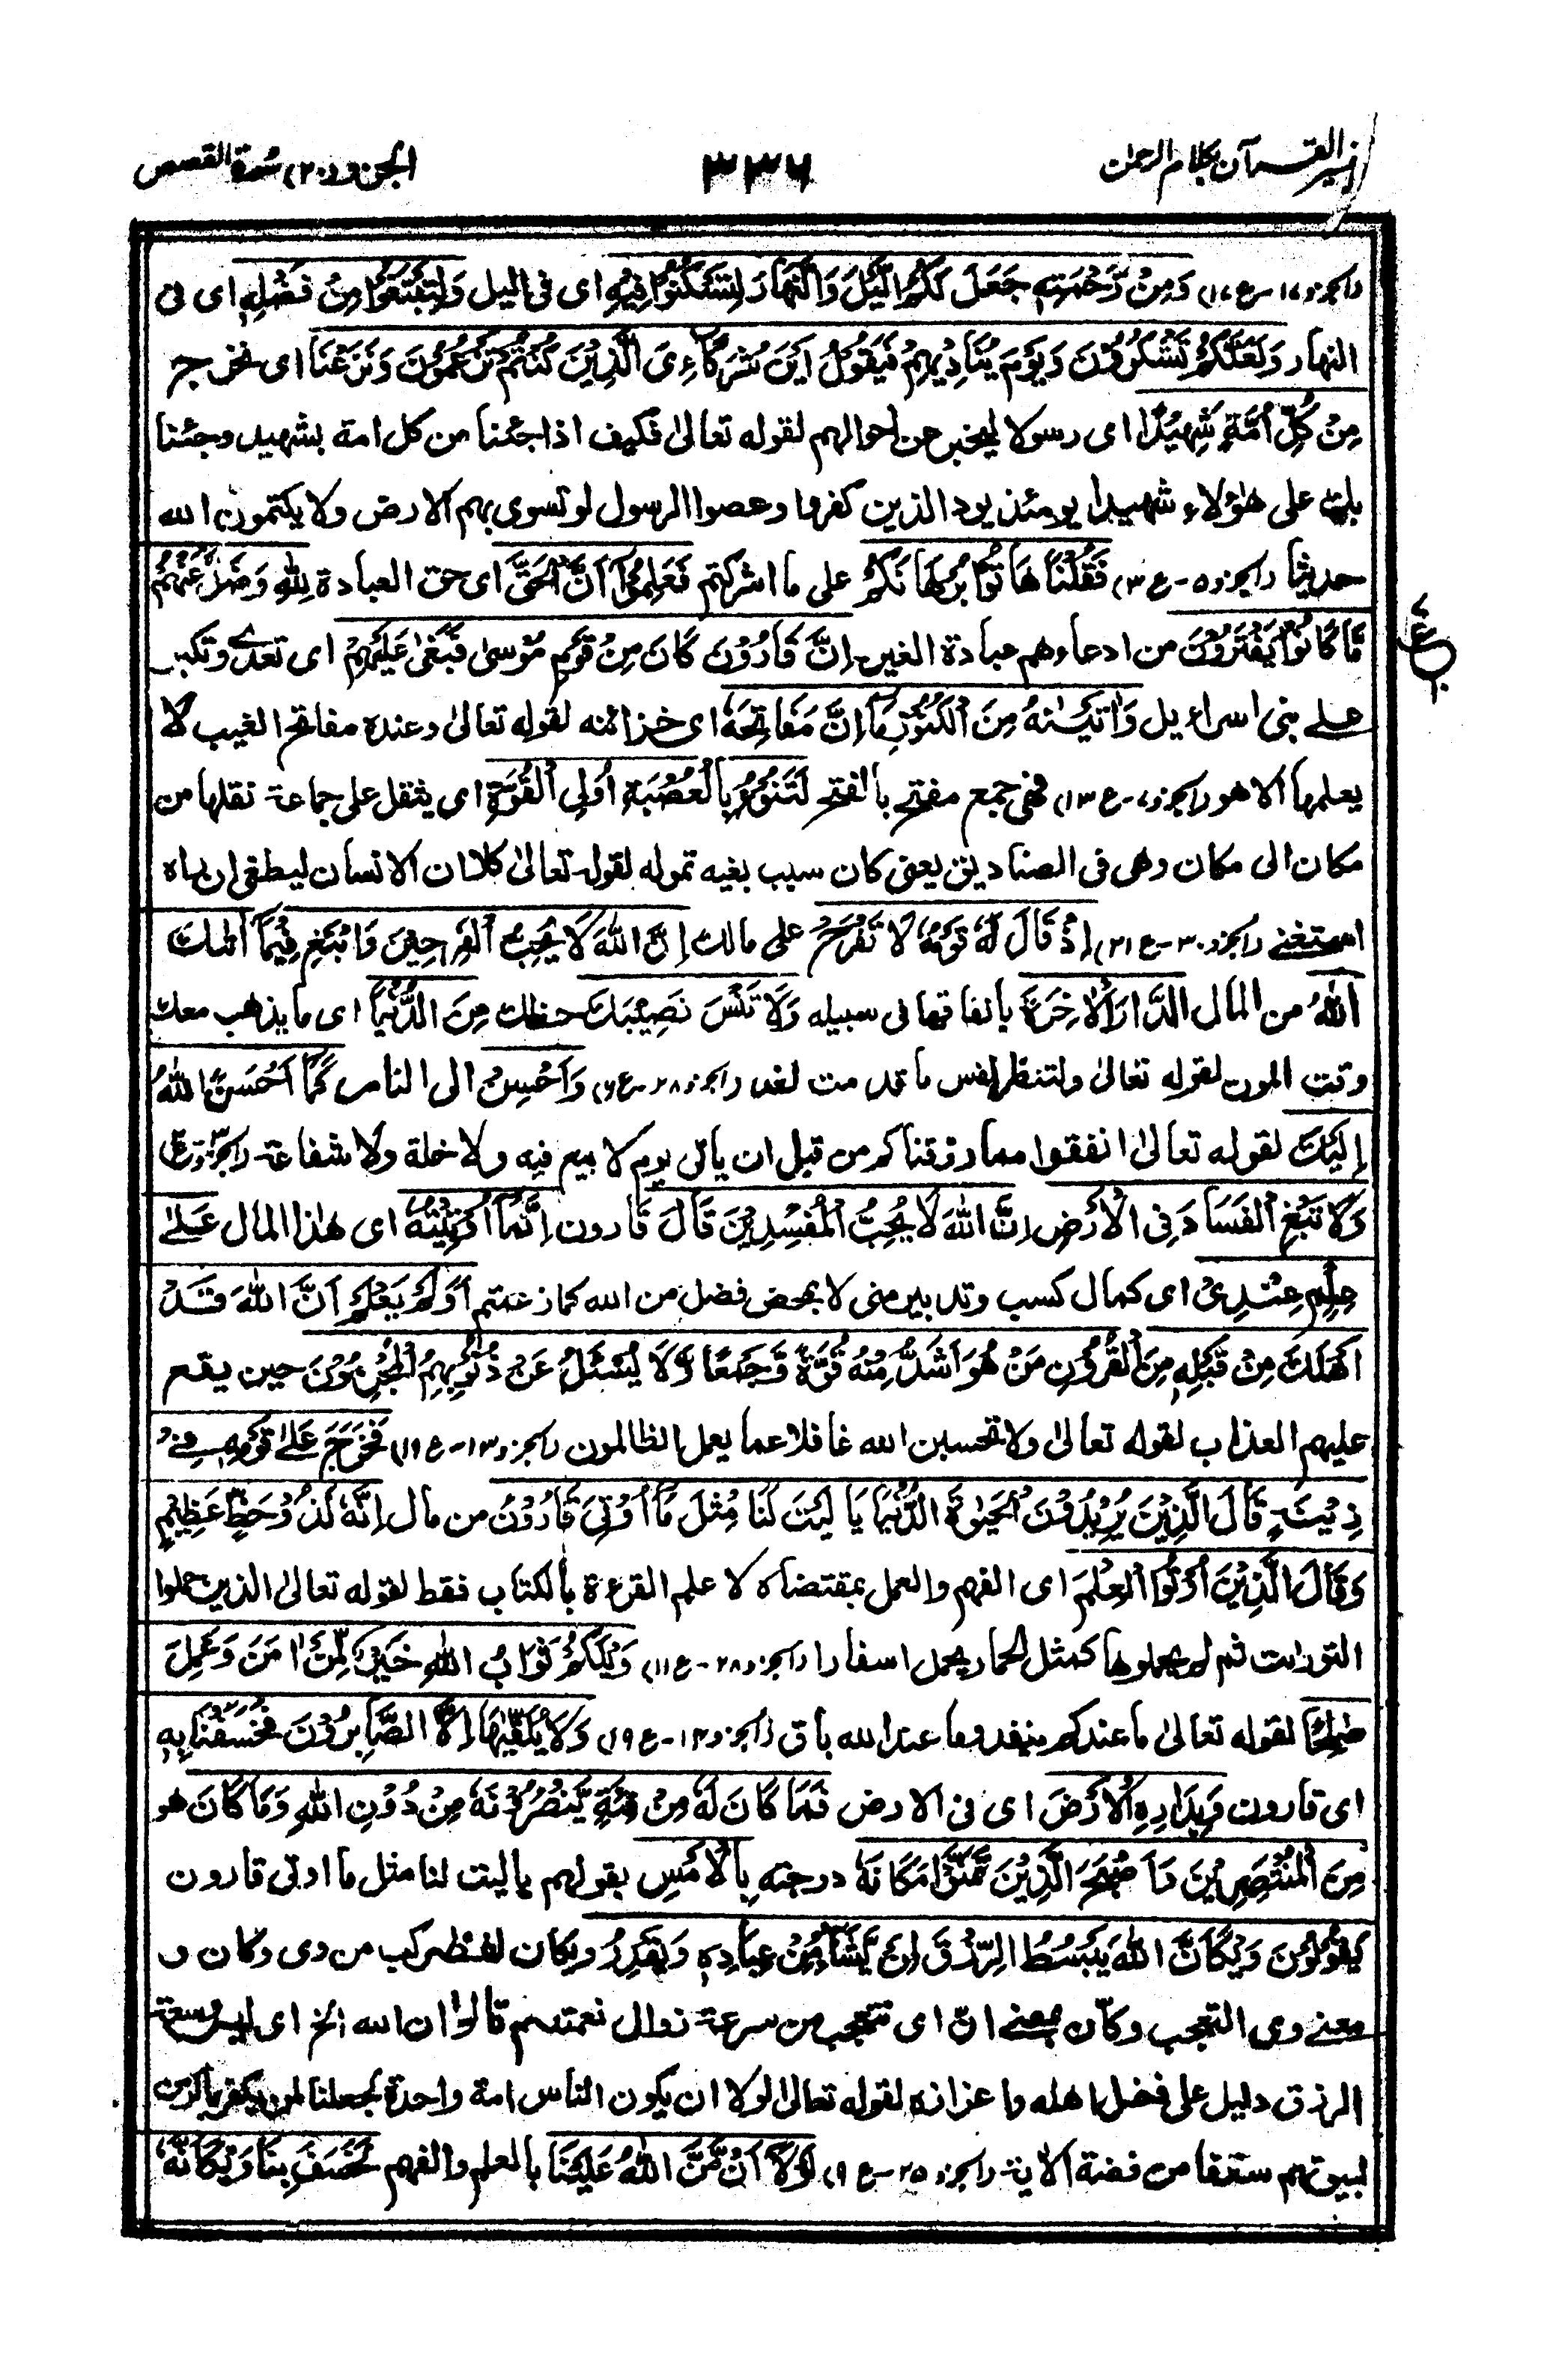 تفسير القرآن بكلام الرحمان
٣٣٦
الجزو (٢٠) سورة القصص
(الجزو ١٧ - ع ١٧) وَمِنْ رَّحْمَتِهٖ جَعَلَ لَكُمُ الَّيْلَ وَالنَّهَارَ لِتَسْكُنُوْا فِيْهِ اى فى اليل وَلِتَبْتَغُوْا مِنْ فَضْلِهٖ اى فى
النهار وَلَعَلَّكُمْ تَشْكُرُوْنَ وَيَوْمَ يُنَادِيْهِمْ فَيَقُوْلُ اَيْنَ شُرَكَآءِىَ الَّذِيْنَ كُنْتُمْ تَزْعُمُوْنَ وَنَزَعْنَا اى نخرج
مِنْ كُلِّ اُمَّةٍ شَهِيْدًا اى رسولا ليخبر عن احوالهم لقوله تعالىٰ فكيف اذا جئنا من كل امة بشهيد وجئنا
بك على هؤلاء شهيدا يومئذ يود الذين كفروا وعصوا الرسول لو تسوى بهم الارض ولا يكتمون الله
حديثا (الجزو ٥ - ع ٣) فَقُلْنَا هَاتُوْا بُرْهَانَكُمْ على ما اشركتم فَعَلِمُوْٓا اَنَّ الْحَقَّ اى حق العبادة لِلّٰهِ وَضَلَّ عَنْهُمْ
مَّا كَانُوْا يَفْتَرُوْنَ من ادعاءهم عبادة الغير اِنَّ قَارُوْنَ كَانَ مِنْ قَوْمِ مُوْسٰى فَبَغٰى عَلَيْهِمْ اى تعدى وتكبر
على بنى اسراءيل وَاٰتَيْنٰهُ مِنَ الْكُنُوْزِ مَآ اِنَّ مَفَاتِحَهٗ اى خزائنه لقوله تعالىٰ وعنده مفاتح الغيب لا
يعلمها الا هو (الجزو ٧ - ع ١٣) فهى جمع مفتح بالفتح لَتَنُوْٓءُ بِالْعُصْبَةِ اُولِى الْقُوَّةِ اى يثقل على جماعة نقلها من
مكان الى مكان وهى فى الصناديق يعنى كان سبب بغيه تموله لقوله تعالىٰ كلا ان الانسان ليطغى ان راه
استغنى (الجزو ٣٠ - ع ٢١) اِذْ قَالَ لَهٗ قَوْمُهٗ لَا تَفْرَحْ على مالك اِنَّ اللّٰهَ لَا يُحِبُّ الْفَرِحِيْنَ وَابْتَغِ فِيْمَآ اٰتٰىكَ
اللّٰهُ من المال الدَّارَ الْاٰخِرَةَ بانفاقها فى سبيله وَلَا تَنْسَ نَصِيْبَكَ حظك مِنَ الدُّنْيَا اى ما يذهب معك
وقت الموت لقوله تعالىٰ ولتنظر نفس ما قدمت لغد (الجزو ٢٨ - ع ٦) وَاَحْسِنْ الى الناس كَمَآ اَحْسَنَ اللّٰهُ
اِلَيْكَ لقوله تعالىٰ انفقوا مما رزقناكم من قبل ان ياتى يوم لا بيع فيه ولا خلة ولا شفاعة (الجزو ٣ ع ٢)
وَلَا تَبْغِ الْفَسَادَ فِى الْاَرْضِ اِنَّ اللّٰهَ لَا يُحِبُّ الْمُفْسِدِيْنَ قَالَ قارون اِنَّمَآ اُوْتِيْتُهٗ اى هٰذا المال عَلٰى
عِلْمٍ عِنْدِىْ اى كمال كسب وتدبير منى لا بمحض فضل من الله كما زعمتم اَوَلَمْ يَعْلَمْ اَنَّ اللّٰهَ قَدْ
اَهْلَكَ مِنْ قَبْلِهٖ مِنَ الْقُرُوْنِ مَنْ هُوَ اَشَدُّ مِنْهُ قُوَّةً وَّجَمْعًا وَلَا يُسْئَلُ عَنْ ذُنُوْبِهِمُ الْمُجْرِمُوْنَ حين يقع
عليهم العذاب لقوله تعالىٰ ولا تحسبن الله غافلا عما يعمل الظالمون (الجزو ١٣ - ع ١٩) فَخَرَجَ عَلٰى قَوْمِهٖ فِىْ
زِيْنَتِهٖ قَالَ الَّذِيْنَ يُرِيْدُوْنَ الْحَيٰوةَ الدُّنْيَا يَا لَيْتَ لَنَا مِثْلَ مَآ اُوْتِىَ قَارُوْنُ من مال اِنَّهٗ لَذُوْ حَظٍّ عَظِيْمٍ
وَقَالَ الَّذِيْنَ اُوْتُوا الْعِلْمَ اى الفهم والعمل بمقتضاه لا علم القرءة بالكتاب فقط لقوله تعالىٰ الذين حملوا
التورات ثم لم يحملوها كمثل الحمار يحمل اسفارا (الجزو ٢٨ - ع ١١) وَيْلَكُمْ ثَوَابُ اللّٰهِ خَيْرٌ لِّمَنْ اٰمَنَ وَعَمِلَ
صٰلِحًا لقوله تعالىٰ ما عندكم ينفد وما عند الله باق (الجزو ١٤ - ع ١٩) وَلَا يُلَقّٰىهَآ اِلَّا الصَّابِرُوْنَ فَخَسَفْنَا بِهٖ
اى قارون وَبِدَارِهِ الْاَرْضَ اى فى الارض فَمَا كَانَ لَهٗ مِنْ فِئَةٍ يَّنْصُرُوْنَهٗ مِنْ دُوْنِ اللّٰهِ وَمَا كَانَ هو
مِنَ الْمُنْتَصِرِيْنَ وَاَصْبَحَ الَّذِيْنَ تَمَنَّوْا مَكَانَهٗ درجته بِالْاَمْسِ بقولهم يا ليت لنا مثل ما اوتى قارون
يَقُوْلُوْنَ وَيْكَاَنَّ اللّٰهَ يَبْسُطُ الرِّزْقَ لِمَنْ يَّشَآءُ مِنْ عِبَادِهٖ وَيَقْدِرُ ويكان لفظ مركب من وى وكان و
معنى وى التعجب وكأن بمعنى ان اى تتعجب من سرعة زوال نعمتهم قالوا ان الله الخ اى ليس سعة
الرزق دليل على فضل اهله واعزازه لقوله تعالىٰ لولا ان يكون الناس امة واحدة لجعلنا لمن يكفر بالرحمن
لبيوتهم سقفا من فضة الاية (الجزو ٢٥ - ع ٩) لَوْلَآ اَنْ مَّنَّ اللّٰهُ عَلَيْنَا بالعلم والفهم لَخَسَفَ بِنَا وَيْكَاَنَّهٗ